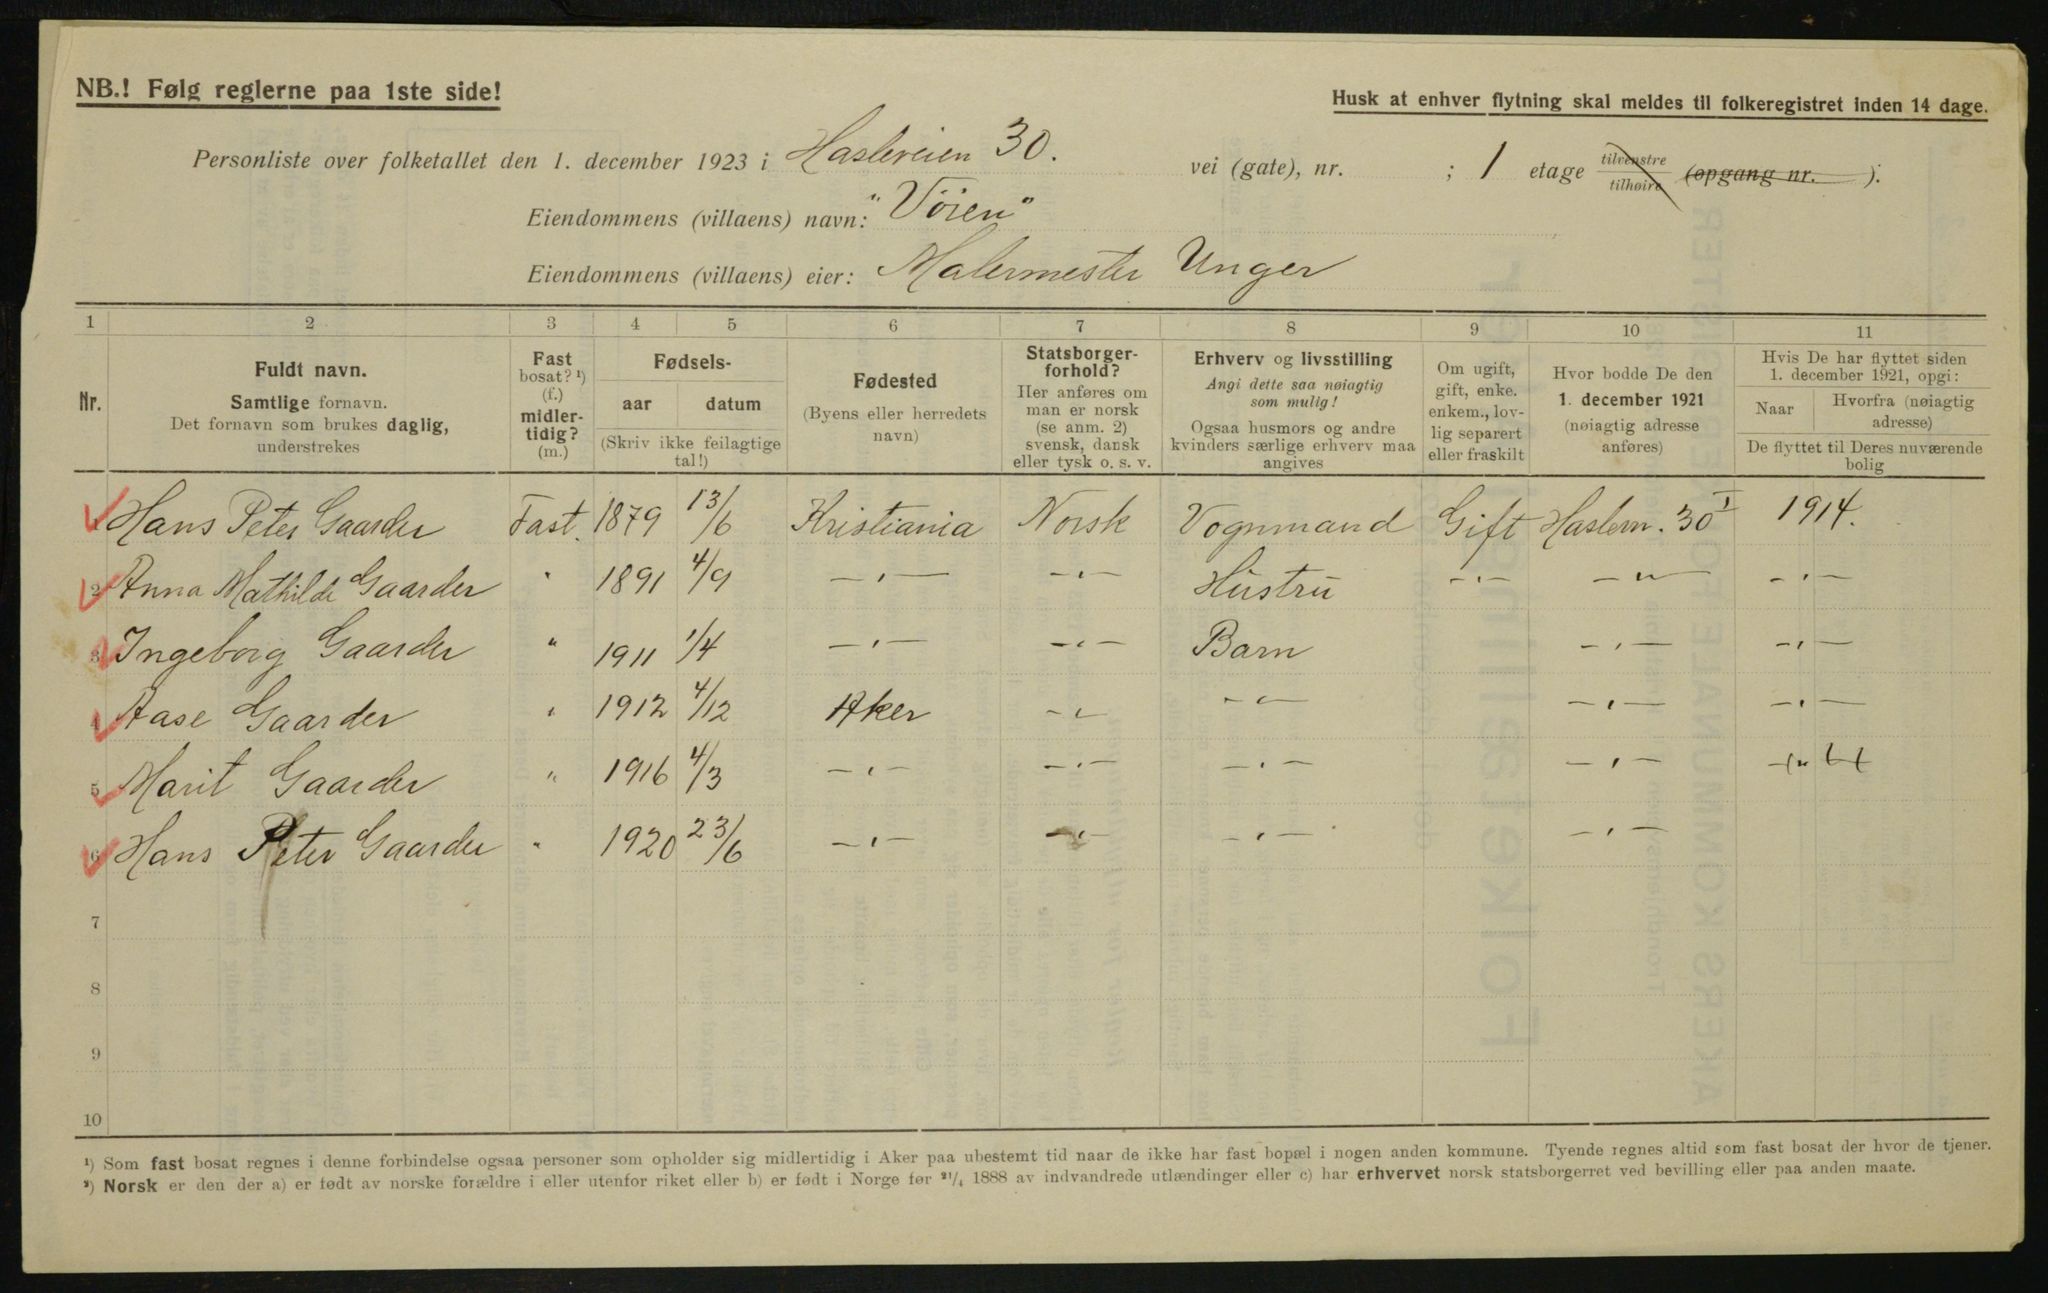 NB.! Følg reglerne paa 1ste side!
Husk at enhver flytning skal meldes til folkeregistret inden 14 dage.
Personliste over folketallet den 1. december 1923 i Haslereien 30. vei (gate), nr. ; 1 etage tilvenstre tilhøire (opgang nr. ).
Eiendommens (villaens) navn: "Vöien"
Eiendommens (villaens) eier: Malermester Unger
1 2 3 4 5 6 7 8 9 10 11
Nr.
Fuldt navn.
Samtlige fornavn.
Det fornavn som brukes daglig,
understrekes
Fast
bosat? ¹)
(f.)
midler-
tidig?
(m.)
Fødsels-
aar datum
(Skriv ikke feilagtige
tal!)
Fødested
(Byens eller herredets
navn)
Statsborger-
forhold?
Her anføres om
man er norsk
(se anm. 2)
svensk, dansk
eller tysk o. s. v.
Erhverv og livsstilling
Angi dette saa nøiagtig
som mulig!
Ogsaa husmors og andre
kvinders særlige erhverv maa
angives
Om ugift,
gift, enke.
enkem., lov-
lig separert
eller fraskilt
Hvor bodde De den
1. december 1921
(nøiagtig adresse
anføres)
Hvis De har flyttet siden
1. december 1921, opgi:
Naar Hvorfra (nøiagtig
adresse)
De flyttet til Deres nuværende
bolig
Hans Peter Gaarder Fast. 1879 13/6 Kristiania Norsk Vognmand Gift Haslem. 30 I 1914.
2 Anna Mathilde Gaarder " 1891 4/9 —„— —„— Hustru —„— —„— —„—
3 Ingeborg Gaarder " 1911 1/4 —„— —„— Barn —„— —„—
4 Aase Gaarder " 1912 4/12 Aker —„— —„— —„— —„—
5 Marit Gaarder " 1916 4/3 —„— —„— —„— —„— —„—
6 Hans Peter Gaarder " 1920 23/6 —„— —„— —„— —„—
7
8
9
10
¹) Som fast bosat regnes i denne forbindelse ogsaa personer som opholder sig midlertidig i Aker paa ubestemt tid naar de ikke har fast bopæl i nogen anden kommune. Tyende regnes altid som fast bosat der hvor de tjener.
²) Norsk er den der a) er født av norske forældre i eller utenfor riket eller b) er født i Norge før ²¹/₄ 1888 av indvandrede utlændinger eller c) har erhvervet norsk statsborgerret ved bevilling eller paa anden maate.